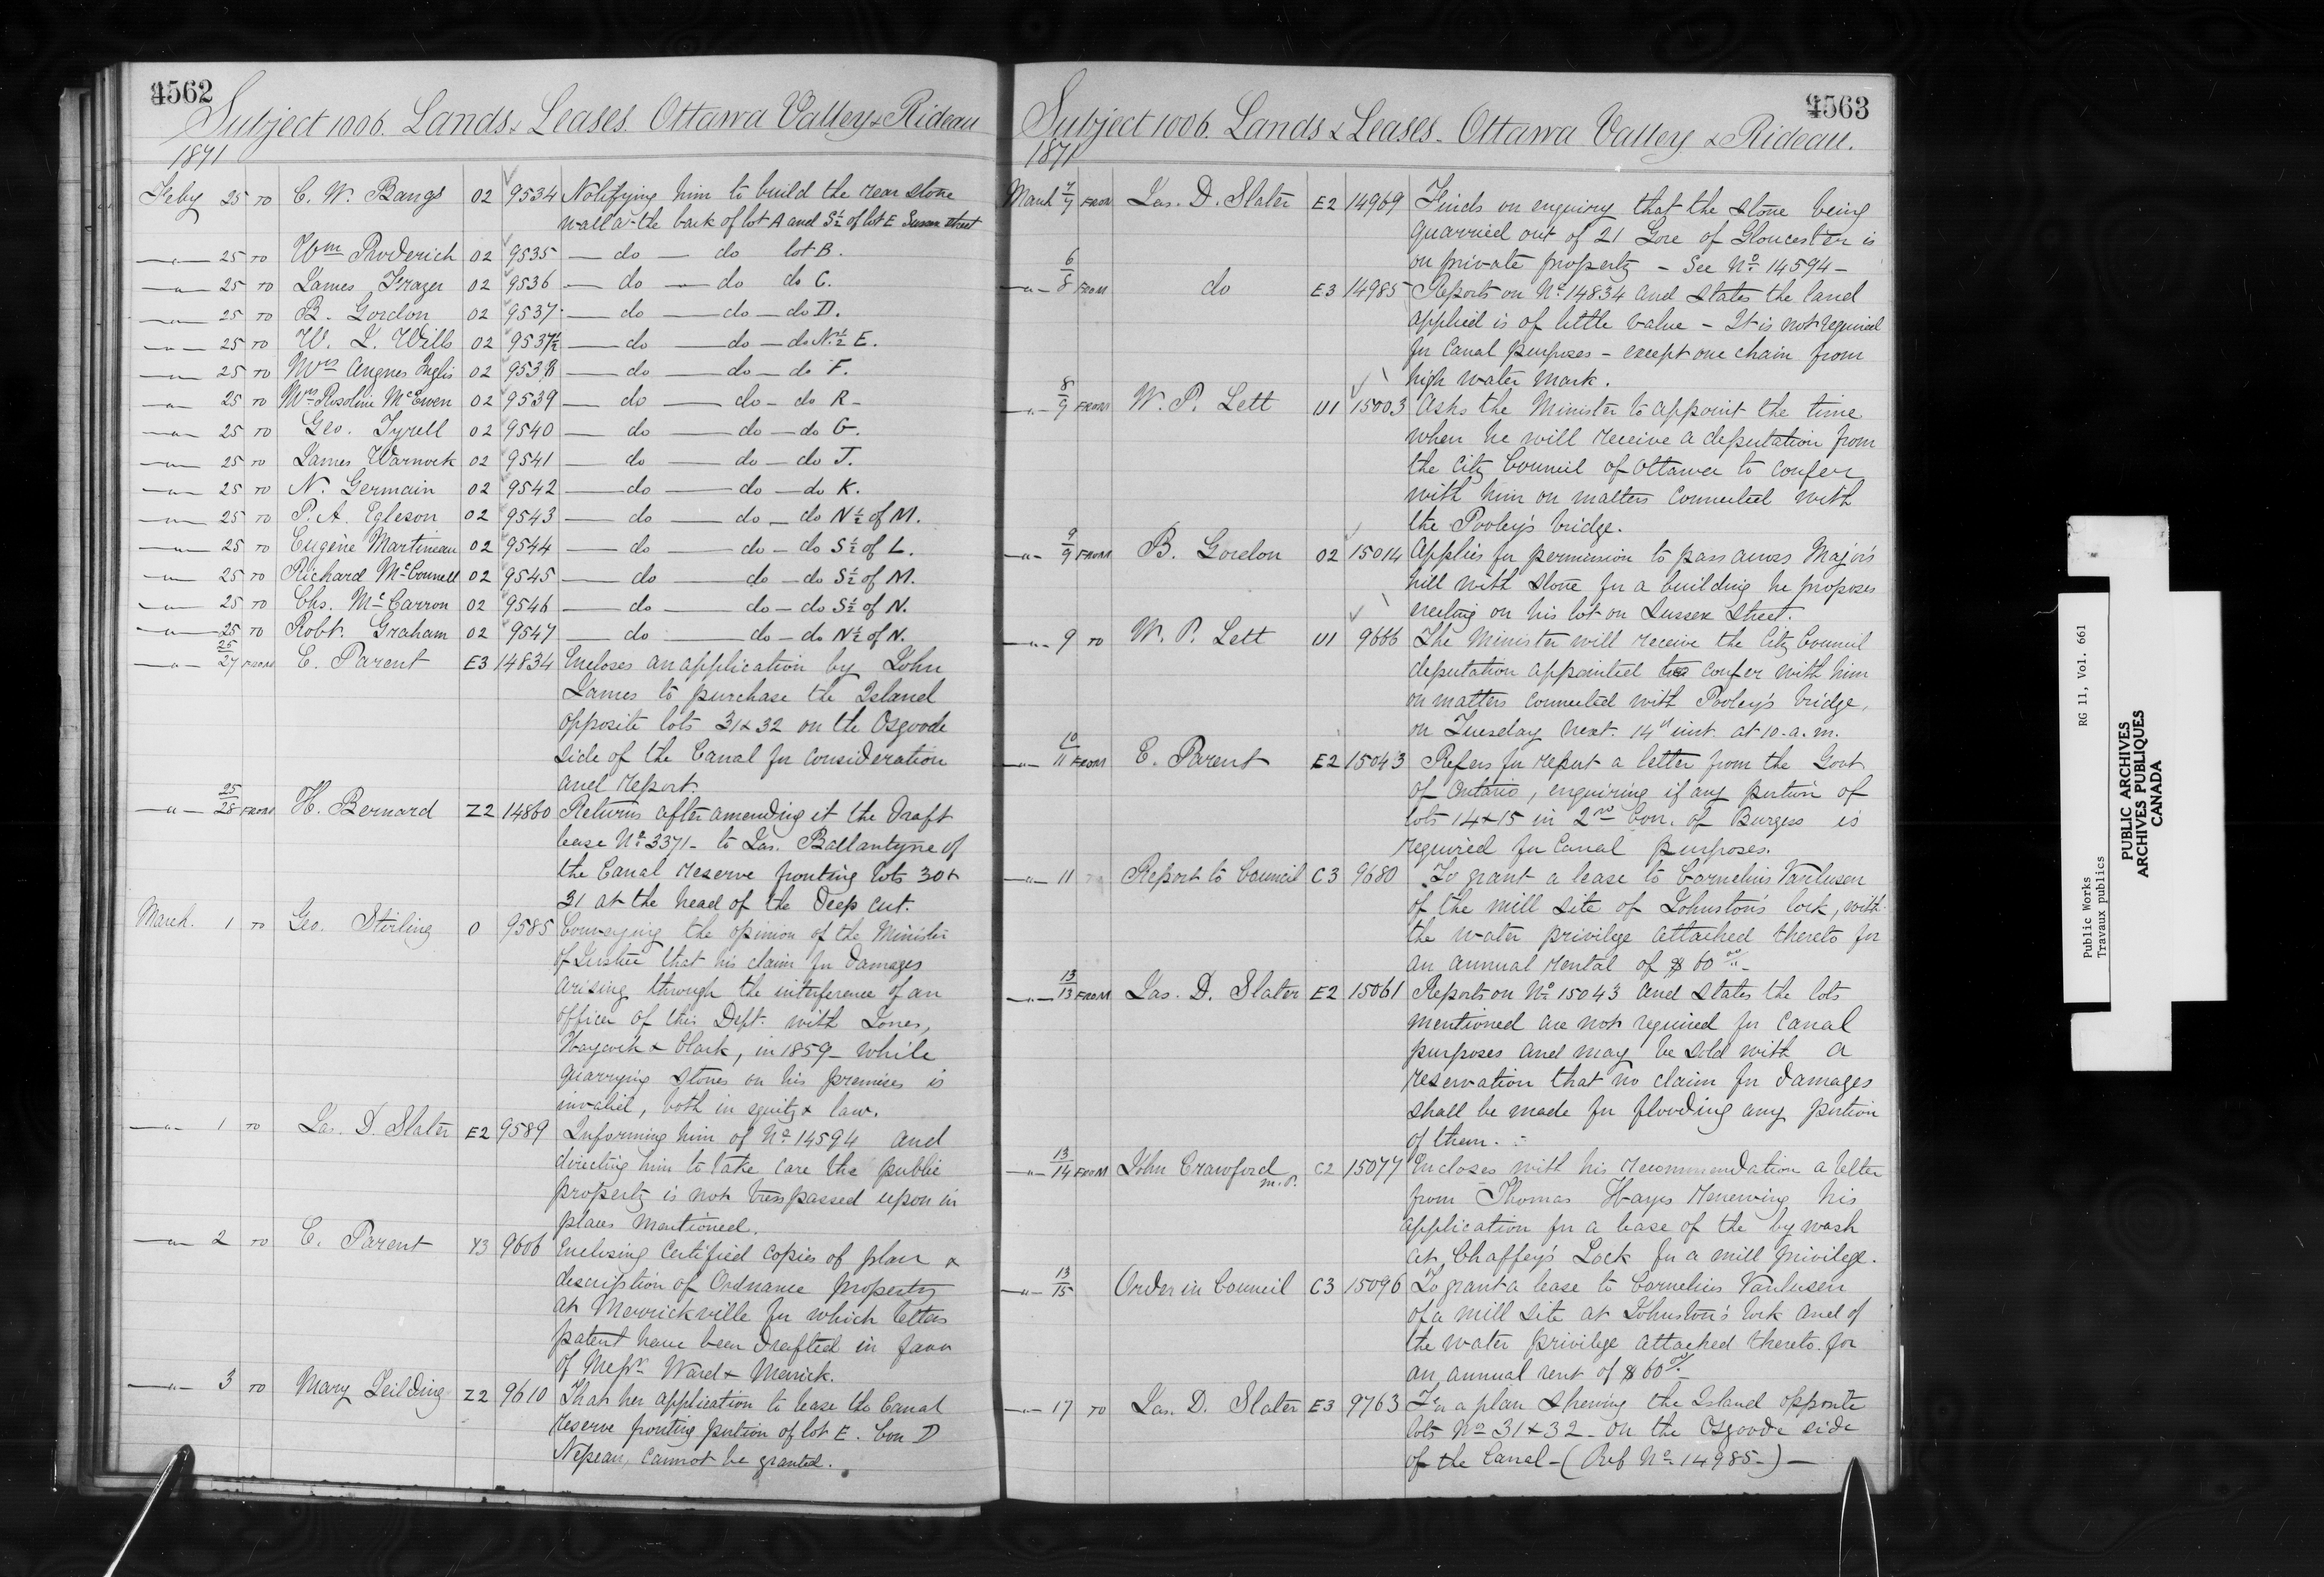 4562
Subject 1006. Lands & Leases. Ottawa Valley & Rideau
1871
Feby 25 TO C. W. Bangs 02 9534 Notifying him to build the rear stone
wall at the back of lot A and S½ of lot E Sussex Street
—„— 25 TO Wm Roderick 02 9535 — do — do lot B.
—„— 25 TO James Frazer 02 9536 — do — do do C.
—„— 25 TO B. Gordon 02 9537 — do — do — do D.
—„— 25 TO W. J. Wills 02 9537½ — do — do — do N.½ E.
—„— 25 TO Mrs Angnes Inglis 02 9538 — do — do — do F.
—„— 25 TO Mrs Rosoline McEwen 02 9539 — do — do — do R —
—„— 25 TO Geo. Tyrell 02 9540 — do — do — do G.
—„— 25 TO James Warnock 02 9541 — do — do — do J.
—„— 25 TO N. Germain 02 9542 — do — do — do K.
—„— 25 TO P. A. Egleson 02 9543 — do — do — do N½ of M.
—„— 25 TO Eugène Martineau 02 9544 — do — do — do S½ of L.
—„— 25 TO Richard McConnell 02 9545 — do — do — do S½ of M.
—„— 25 TO Chs. McCarron 02 9546 — do — do — do S½ of N.
—„— 25 TO Robt. Graham 02 9547 — do — do — do N½ of N.
—„— 25/27 FROM E. Parent E3 14834 Encloses an application by John
James to purchase the Island
opposite lots 31 & 32 on the Osgoode
side of the Canal for consideration
and report.
—„— 25/28 FROM H. Bernard Z2 14860 Returns after amending it the draft
lease No 3371 — to Jas. Ballantyne of
the Canal reserve fronting lots 30 &
31 at the head of the Deep cut.
March. 1 TO Geo. Stirling O 9585 Conveying the opinion of the Minister
of Justice that his claim for damages
arising through the interference of an
officer of this Dept. with Jones,
Haycock & Clark, in 1859 — while
quarrying stones on his premises is
invalid, both in equity & law.
—„— 1 TO Jas. D. Slater E2 9589 Informing him of No 14594 and
directing him to take care the public
property is not trespassed upon in
places mentioned.
—„— 2 TO E. Parent Y3 9606 Enclosing certified copies of plan &
description of Ordnance property
at Merrickville for which letters
patent have been drafted in favor
of Messrs Ward & Merrick.
—„— 3 TO Mary Leilding Z2 9610 That her application to lease the Canal
reserve fronting portion of lot E. Con D
Nepean, cannot be granted.
4563
Subject 1006. Lands & Leases. Ottawa Valley & Rideau.
1871
March 7/7 FROM Jas. D. Slater E2 14969 Finds on enquiry that the stone being
quarried out of 21 Gore of Gloucester is
on private property — See No 14594 —
—„— 6/8 FROM do E3 14985 Reports on No 14834 and states the land
applied is of little value — It is not required
for Canal purposes — except one chain from
high water mark.
—„— 8/9 FROM W. P. Lett U1 15003 Asks the Minister to appoint the time
when he will receive a deputation from
the City Council of Ottawa to confer
with him on matters connected with
the Pooley's bridge.
—„— 9/9 FROM B. Gordon 02 15014 Applies for permission to pass across Major's
hill with stone for a building he proposes
erecting on his lot on Sussex Street.
—„— 9 TO W. P. Lett U1 9666 The Minister will receive the City Council
deputation appointed to confer with him
on matters connected with Pooley's bridge,
on Tuesday next 14th inst. at 10. a. m.
—„— 10/11 FROM E. Parent E2 15043 Refers for report a letter from the Govt
of Ontario, enquiring if any portion of
lots 14 & 15 in 2nd Con. of Burgess is
required for Canal purposes.
—„— 11 Report to Council C3 9680 To grant a lease to Cornelius Vanlusen
of the mill site of Johnston's lock, with
the water privilege attached thereto for
an annual rental of $60 00/..—
—„— 13/13 FROM Jas. D. Slater E2 15061 Reports on No 15043 and states the lots
mentioned are not required for canal
purposes and may be sold with a
reservation that no claim for damages
shall be made for flooding any portion
of them. —
—„— 13/14 FROM John Crawford m.P. C2 15077 Encloses with his recommendation a letter
from Thomas Hayes renewing his
application for a lease of the by wash
at Chaffey's Lock for a mill privilege.
—„— 13/15 Order in Council C3 15096 To grant a lease to Cornelius Vanlusen
of a mill site at Johnston's lock and of
the water privilege attached thereto for
an annual rent of $60 00/..
—„— 17 TO Jas. D. Slater E3 9763 For a plan shewing the Island opposite
lots No 31 & 32 — on the Osgoode side
of the Canal — (Ref No 14985 —) —
Public Works RG 11, Vol. 661
Travaux publics
PUBLIC ARCHIVES
ARCHIVES PUBLIQUES
CANADA